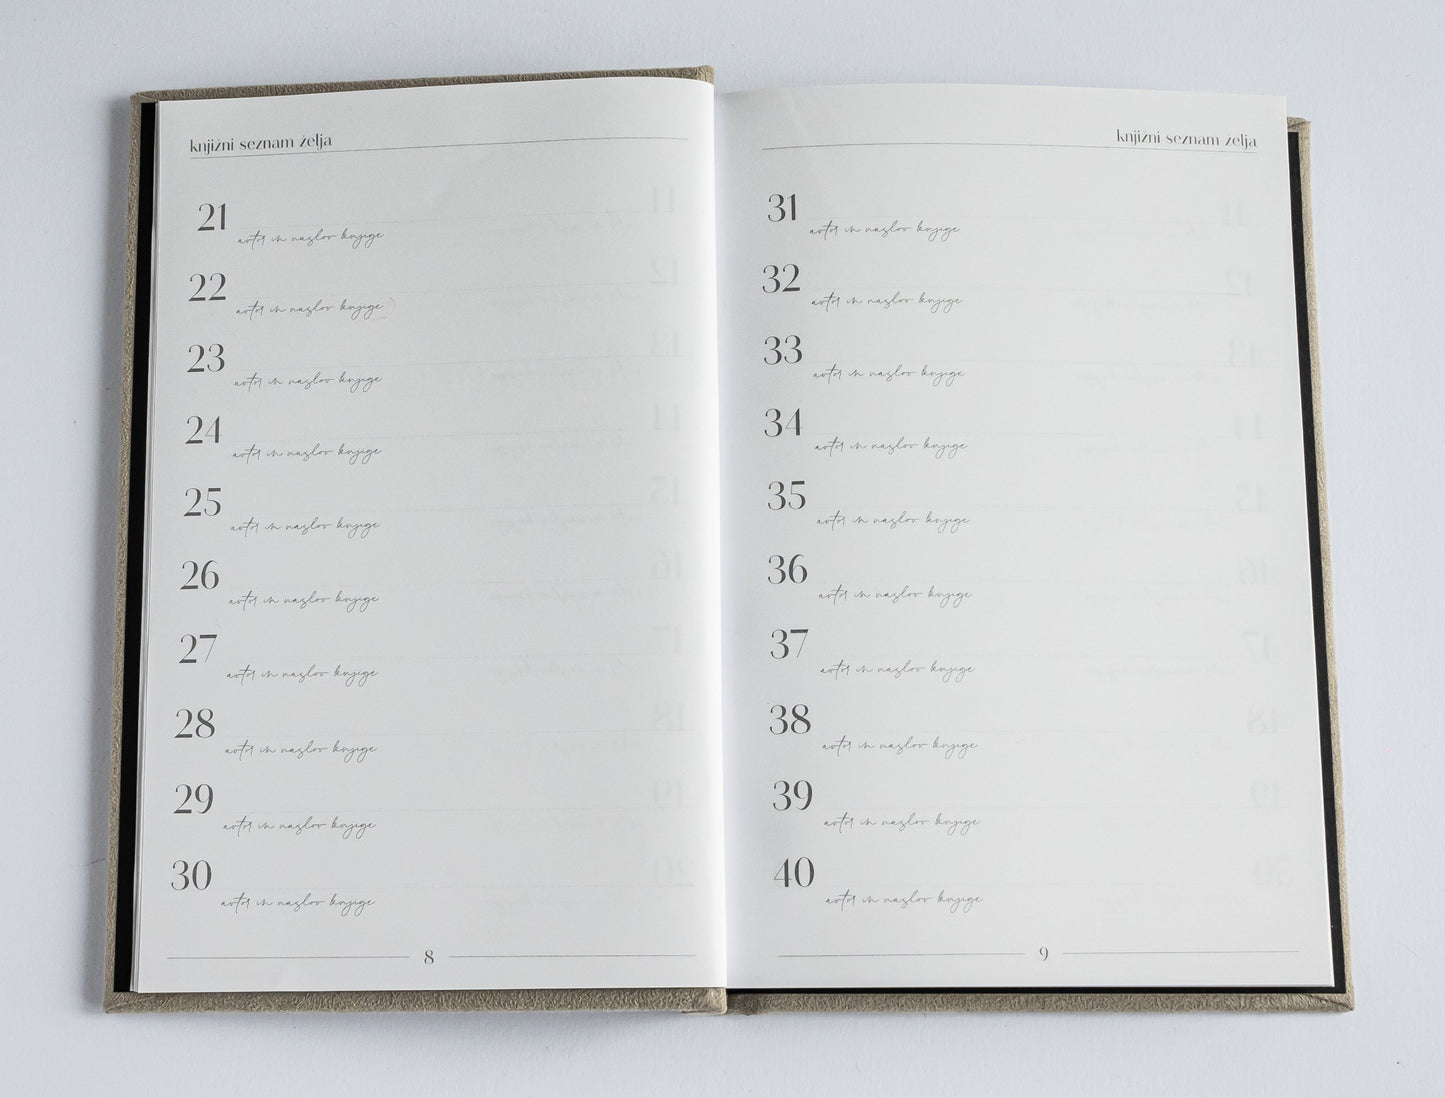 knjižni seznam želja
21
avtor in naslov knjige
22
avtor in naslov knjige
23
avtor in naslov knjige
24
avtor in naslov knjige
25
avtor in naslov knjige
26
avtor in naslov knjige
27
avtor in naslov knjige
28
avtor in naslov knjige
29
avtor in naslov knjige
30
avtor in naslov knjige
8
knjižni seznam želja
31
avtor in naslov knjige
32
avtor in naslov knjige
33
avtor in naslov knjige
34
avtor in naslov knjige
35
avtor in naslov knjige
36
avtor in naslov knjige
37
avtor in naslov knjige
38
avtor in naslov knjige
39
avtor in naslov knjige
40
avtor in naslov knjige
9